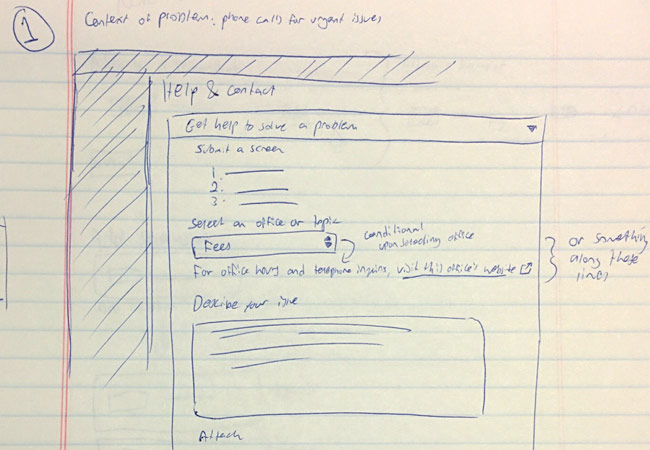 1
Context of problem: phone calls for urgent issues
Help & contact
Get help to solve a problem
Submit a screen
1.
2.
3.
Select an office or topic
Fees
conditional
upon selecting office
For office hours and telephone inquiries, visit this office's website
or something
along these
lines
Describe your issue
Attach